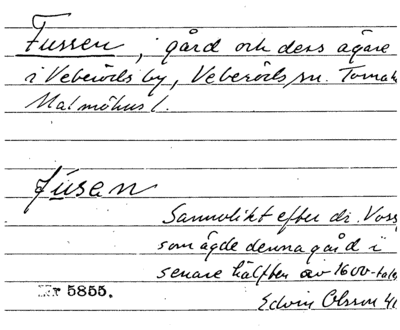 Fussen, gård och dess ägare
i Veberöds by, Veberöds sn. Torna
Malmöhus l.
fusen
Sannolikt efter dr. Voss
som ägde denna gård i
senare hälften av 1600-tale
Nr 5855.
Edvin Olsson